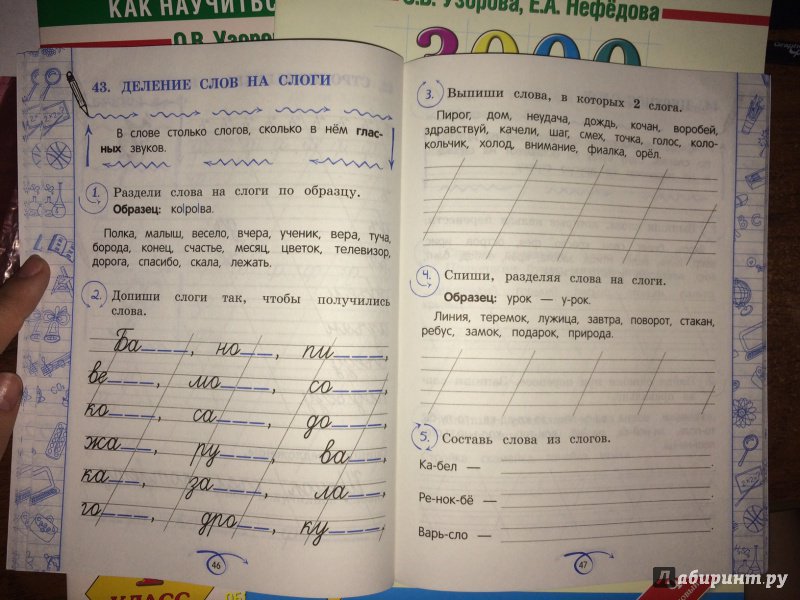 КАК НАУЧИТЬС
О.В. Узоро
О.В. Узорова, Е.А. Нефёдова
3000
43. ДЕЛЕНИЕ СЛОВ НА СЛОГИ
В слове столько слогов, сколько в нём глас-
ных звуков.
1. Раздели слова на слоги по образцу.
Образец: ко|ро|ва.
Полка, малыш, весело, вчера, ученик, вера, туча,
борода, конец, счастье, месяц, цветок, телевизор,
дорога, спасибо, скала, лежать.
2. Допиши слоги так, чтобы получились
слова.
Ба____, но____, пи____,
ве____, мо____, со____,
ко____, са____, до____,
жа____, ру____, ва____,
ка____, за____, ла____,
го____, дро____, ку____,
46
3. Выпиши слова, в которых 2 слога.
Пирог, дом, неудача, дождь, кочан, воробей,
здравствуй, качели, шаг, смех, точка, голос, коло-
кольчик, холод, внимание, фиалка, орёл.
4. Спиши, разделяя слова на слоги.
Образец: урок — у-рок.
Линия, теремок, лужица, завтра, поворот, стакан,
ребус, замок, подарок, природа.
5. Составь слова из слогов.
Ка-бел — ____.
Ре-нок-бё — ____.
Варь-сло — ____.
47
КЛАСС
Лабиринт.ру